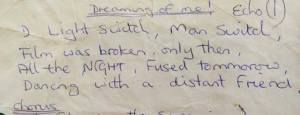 Dreaming of me! Echo (1)
1) Light Switch, Man Switch,
Film was broken, only then,
All the NIGHT, Fused tommorow,
Dancing with a distant Friend.
Chorus